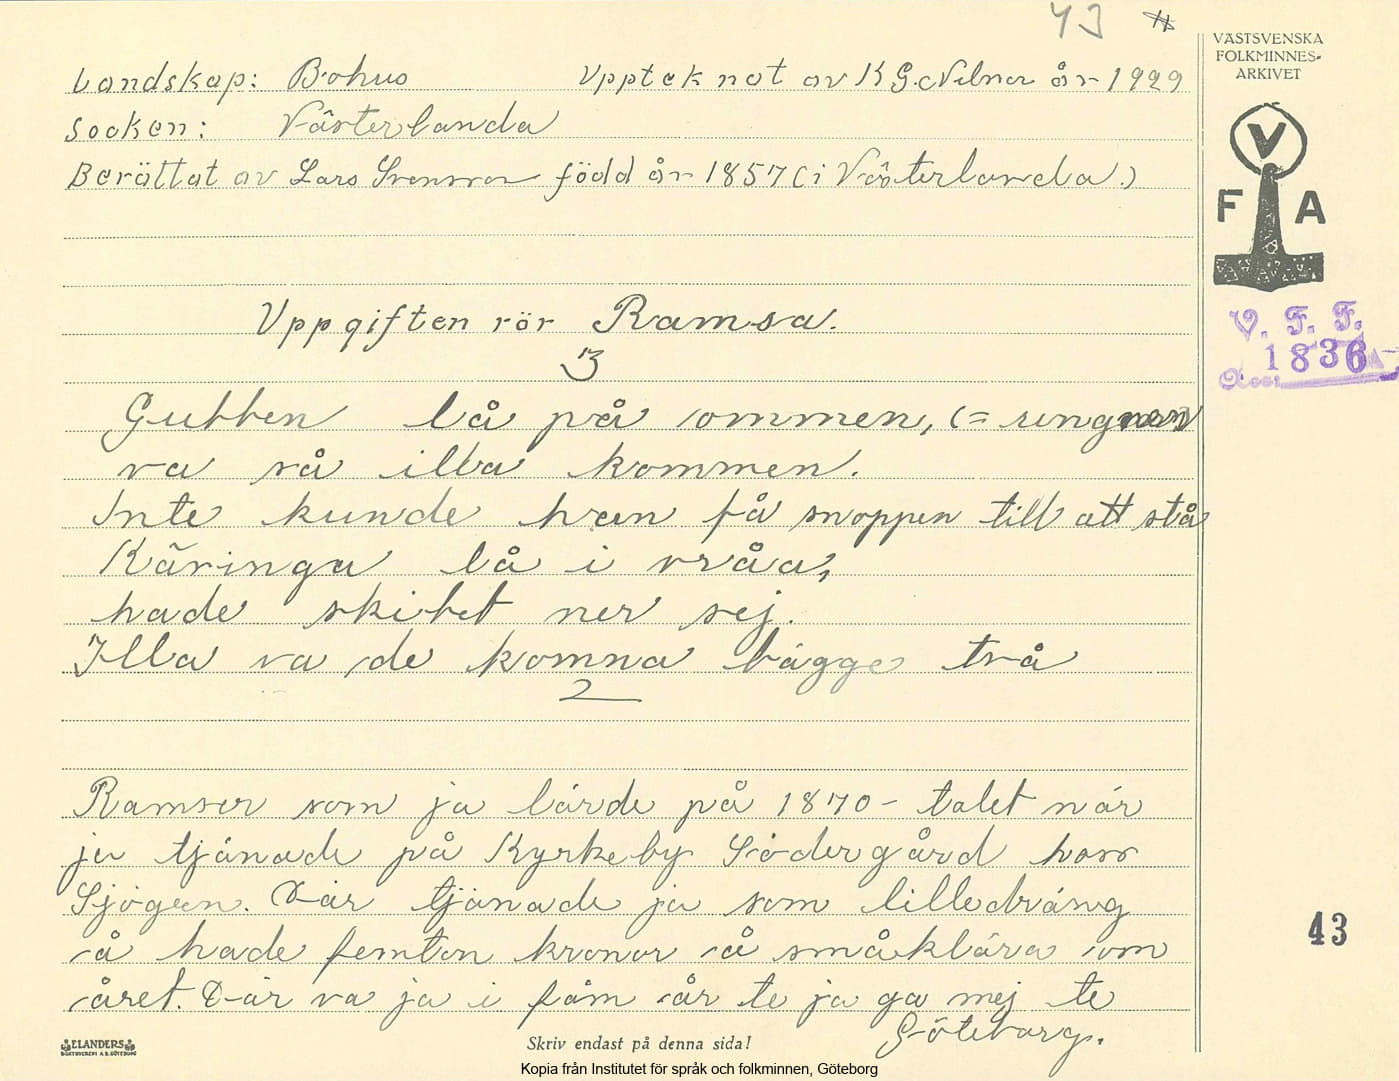 43 #
VÄSTSVENSKA
FOLKMINNES-
ARKIVET
Landskap: Bohus Upptecknat av K G. Nilson år 1929
Socken: Västerlanda
Berättat av Lars Svensson född år 1857 (i Västerlanda.)
V
F A
Uppgiften rör Ramsa.
V. F. F.
Acc: 1836
3
Gubben lå på ommen, (= ungnen)
va så illa kommen.
Inte kunde han få snoppen till att stå
Käringa lå i vråa,
hade skitet ner sej.
Illa va de komna bägge två
2
Ramser som ja lärde på 1870-talet när
ja tjänade på Kyrkeby Södergård hoss
Sjögeen. Där tjänade ja som lilledräng
å hade femton kronor å småklära om
året. Där va ja i fäm år te ja ga mej te
Göteborg.
43
ELANDERS
BOKTRYCKERI A.B. GÖTEBORG
Skriv endast på denna sida!
Kopia från Institutet för språk och folkminnen, Göteborg